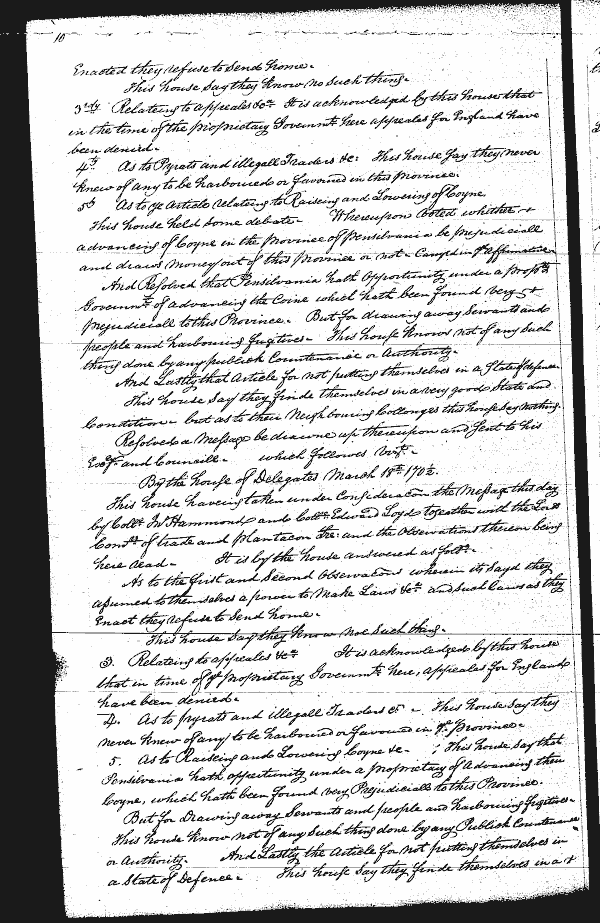 10
Enacted they refuse to Send home.
This house Say they know no such thing.
3rdly Relateing to appeales &ca It is acknowledged by this house that
in the time of the Proprietary Governmt. here appeales for England have
been denied.
4th. As to Pyrats and illegall Traders &c: This house Say they never
knew of any to be harboured or favoured in this Province.
5th As to ye Article relateing to Raiseing and Lowering of Coyne
This house held some debate. Whereupon Voted whether
advancing of Coyne in the Province of Pensilvania be prejudiciall
and draws money out of this Province or not. Carryed in ye affirmative
And Resolved that Pensilvania hath Opportunity under a
Governmt. of advancing the Coine which hath been found very
prejudiciall to this Province. But for drawing away Servants and
people and harbouring fugitives. This house knows not of any Such
thing done by any publick Countenance or Authority.
And Lastly that Article for not putting themselves in a State of defence
This house Say they finde themselves in a very good State and
Condition. but as to their Neighbouring Collonyes this house Say nothing.
Resolved a Message be drawne up thereupon and Sent to his
Excy. and Councill. which followes vizt.
By the house of Delegates March 18th. 1701/2.
This house haveing taken under Consideracon the Message this day
by Collo. Jno Hammond and Collo. Edward Loyd together with the Lords
Comrs. of trade and plantacon Lre: and the Observations thereon being
here read. It is by the house answered as foll:
As to the first and Second Observations wherein its Sayd they
assumed to themselves a power to Make Laws &ca and such Laws as they
Enact they refuse to Send home.
This house Say they know noe Such thing.
3. Relateing to appeales &ca It is acknowledged by this house
that in time of ye proprietary Governmt. here, appeales for England
have been denied.
4. As to pyrats and illegall Traders &c. This house Say they
never knew of any to be harboured or favoured in ye. Province.
5. As to Raiseing and Lowering Coyne &c. This house Say that
Pensilvania hath oppertunity under a Proprietary of Advancing their
Coyne, which hath been found very Prejudiciall to this Province.
But for Drawing away Servants and people and harbouring fugitives.
This house know not of any Such thing done by any Publick Countenance
or Authority. And Lastly the Article for not putting themselves in
a State of Defence. This house Say they finde themselves in a